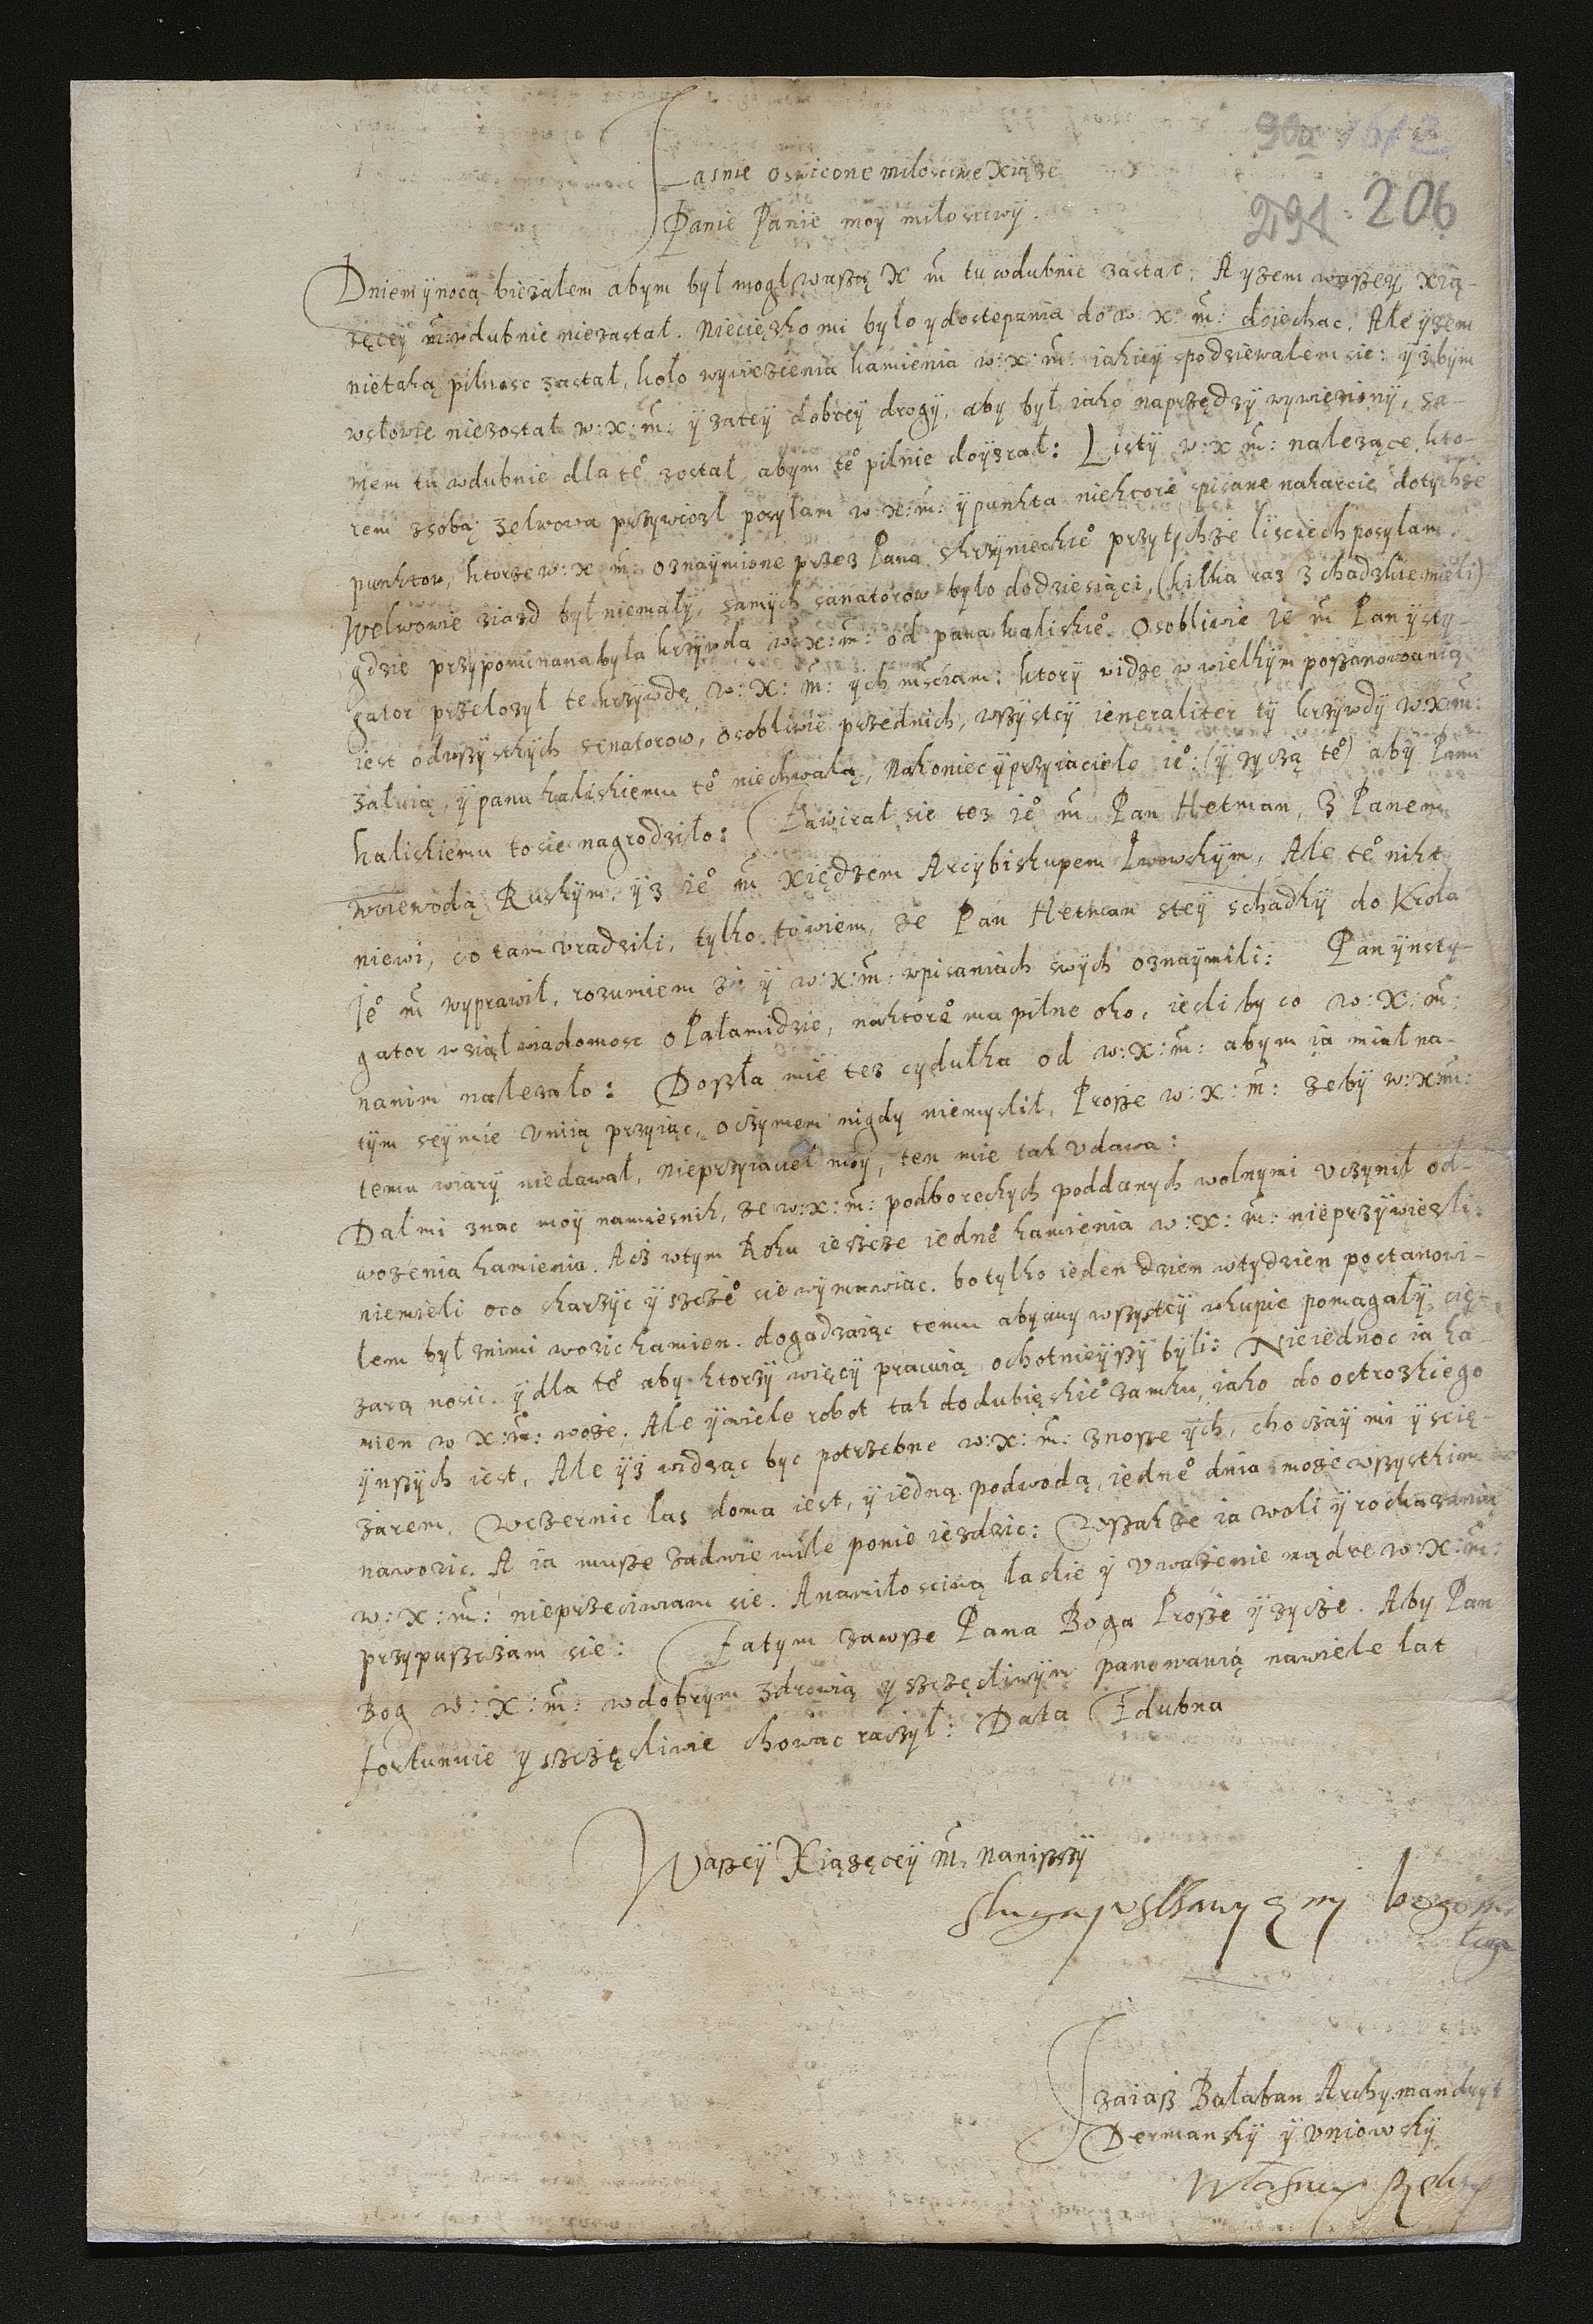 96a 1612
291. 206
Jasnie oswicone miłosciwe Xiąze
Panie Panie moy miłosciwÿ.
Dniem ÿ nocą biezałem abym był mogł waßą X m̃ tu w dubnie zastac. A yzem waßey Xią-
zęcey m̃ w dubnie niezastał. Nieciężko mi było y dostepania do w: x: m̃: doiechac. Ale ÿzem
nietaką pilnosc zastał, koło wywiezienia kamienia w: x: m̃: iakiey spodziewałem sie: ÿ zbym
wsłowie niezostał w: x: m̃: ÿ zatey dobrey drogÿ, aby był iako naprzędzÿ wywiezionÿ, za-
męm tu w dubnie dla te͒ został, abym te͒ pilnie doÿzrał: Listÿ w: x m̃: nalezące, kto-
rem zsobą zelwowa przywiozł posyłam w: x: m̃: ÿ punkta niektore spisane nakarcie dotychże
punktow, ktorze w: x m̃: oznaÿmione przez Pana skrzÿneckie͒ przytÿchże lisciech posyłam.
Welwowie ziazd był niemałÿ, samÿch sanatorow było dodziesiąci, (kilka raz zchadzkie mieli)
gdzie przypominana była krzywda w: x: m̃: od pana kaliskie͒. Osobliwie ie m̃ Pan ÿsty-
gator przełozył te krzÿwdę w: X: m̃: ych mściam: ktorÿ widze w wielkÿm poßanowanią
iest odwßÿstkÿch senatorow, osobliwie przednich, wßystcÿ ieneraliter tÿ krzÿwdÿ w: x m̃:
załuią, ÿ panu kaliskiemu te͒ niechwalą, Nakoniec ÿ przyiaciele ie͒: (ÿ zyczą te͒) abÿ Panu
kaliskiemu tosie nagrodziło: Zawirał sie tez ie͒ m̃ Pan Hetman, z Panem
woiewodą Ruskÿm, ÿ z ie͒ m̃ Xiędzem Arcybiskupem Lwowskÿm, Ale te͒ nikt
niewi, co tam vradzili, tylko to wiem, ze Pan Hetman stey schadkÿ do Krola
Je͒ m̃ wyprawił, rozumiem ze ÿ w: x: m̃: wpisaniach swÿch oznaÿmili: Pan ÿnsty-
gator wziął wiadomosc o Pałamidzie, naktore͒ ma pilne oko, iesli by co w: X: m̃:
nanim nalezało: Doßła mie tez cydułka od w: X: m̃: abym ia miał na-
tÿm seÿmie vnią przÿiąc, oczymem nigdy niemyslił, Proße w: x: m̃: zebÿ w: x m̃:
temu wiarÿ niedawał, nieprzyiaciel moÿ, ten mie tak vdawa:
Dał mi znac moÿ namiesnik, ze w: x: m̃: podboreckych poddanych wolnymi vczynił od-
wozenia kamienia. Acz wtym Roku iescze iedne͒ kamienia w: x: m̃: nieprzÿwiezli:
niemieli oco skarzÿc ÿ szcze͒ sie wymawiac. bo tylko ieden dzien wtydzien postanowi-
łem był znimi wozic kamien. dogadzaiąc temu abysmy wßystcÿ wkupie pomagałÿ cię-
zarą nosic. ÿ dla te͒ aby ktorzÿ więcÿ pracuią ochotnieÿßÿ byli: Nieiednoc ia ka-
mien w X: m̃: wożę. Ale ÿ wiele robot tak dodubięskie͒ zamku, iako do ostrozkiego
ÿnßÿch iest, Ale ÿż widząc byc potrzebne w: x: m̃: znosze ÿch, choczaÿ mi ÿ scię-
żarem. Wczernic las doma iest, ÿ iedną podwodą, iedne͒ dnia może wßystkim
nawozic. A ia muße zadwie mile ponie iezdzic: Wßakże ia woli ÿ roskazanią
w: X: m̃: nieprzeciwiam sie. A namiłosciwą łaskie ÿ vwazenie mądre w: X: m̃:
przypußczam sie: Zatym zawße Pana Boga Proße ÿ zycże. Abÿ Pan
Bog w: X: m̃: wdobrym zdrowią ÿ szczęsliwÿm panowanią nawiele lat
fortunnie ÿ szczęsliwie chowac raczył: Data Zdubna
Waßeÿ Xiązęceÿ m̃, naniżßÿ
sluga ÿ vstawyczny bogomo
lca
Jzaiaß Bałaban Archymandryt
Dermanskÿ ÿ vniowskÿ
własną Ręką